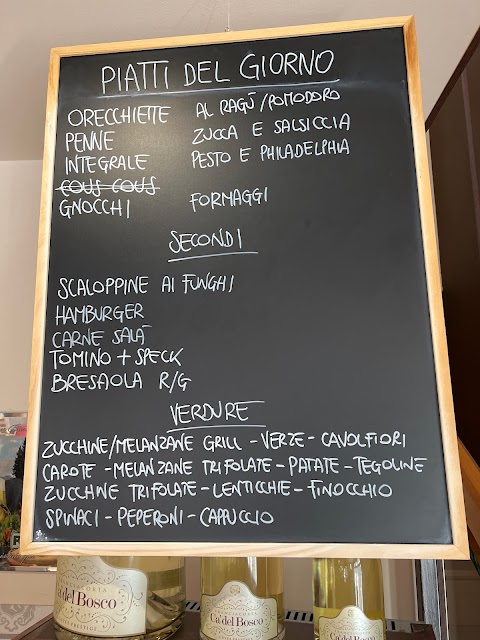 PIATTI DEL GIORNO
ORECCHIETTE AL RAGÙ/POMODORO
PENNE ZUCCA E SALSICCIA
INTEGRALE PESTO E PHILADELPHIA
COUS COUS
GNOCCHI FORMAGGI
SECONDI
SCALOPPINE AI FUNGHI
HAMBURGER
CARNE SALÀ
TOMINO + SPECK
BRESAOLA R/G
VERDURE
ZUCCHINE/MELANZANE GRILL - VERZE - CAVOLFIORI
CAROTE - MELANZANE TRIFOLATE - PATATE - TEGOLINE
ZUCCHINE TRIFOLATE - LENTICCHIE - FINOCCHIO
SPINACI - PEPERONI - CAPPUCCIO
Ca'del Bosco
Ca'del Bosco
Ca'del Bosco